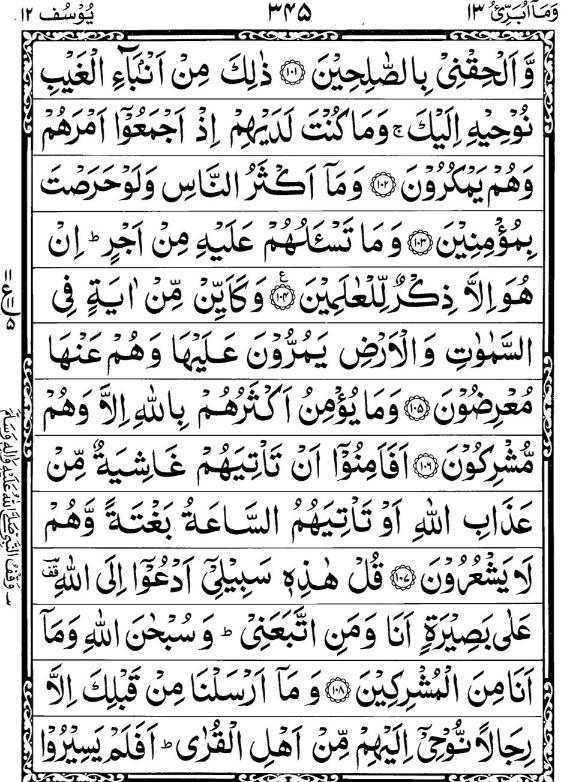 وَمَاۤ اُبَرِّئُ ١٣
٣٤٥
يُوْسُف ١٢
وَّ اَلْحِقْنِیْ بِالصّٰلِحِیْنَ ﴿۱۰۱﴾ ذٰلِكَ مِنْ اَنْۢبَآءِ الْغَیْبِ
نُوْحِیْهِ اِلَیْكَ ۚ وَمَا كُنْتَ لَدَیْهِمْ اِذْ اَجْمَعُوْۤا اَمْرَهُمْ
وَهُمْ یَمْكُرُوْنَ ﴿۱۰۲﴾ وَمَاۤ اَكْثَرُ النَّاسِ وَلَوْ حَرَصْتَ
بِمُؤْمِنِیْنَ ﴿۱۰۳﴾ وَ مَا تَسْـَٔلُهُمْ عَلَیْهِ مِنْ اَجْرٍ ؕ اِنْ
هُوَ اِلَّا ذِكْرٌ لِّلْعٰلَمِیْنَ ﴿۱۰۴﴾ ع وَكَاَیِّنْ مِّنْ اٰیَةٍ فِی
السَّمٰوٰتِ وَالْاَرْضِ یَمُرُّوْنَ عَلَیْهَا وَهُمْ عَنْهَا
مُعْرِضُوْنَ ﴿۱۰۵﴾ وَمَا یُؤْمِنُ اَكْثَرُهُمْ بِاللّٰهِ اِلَّا وَهُمْ
مُّشْرِكُوْنَ ﴿۱۰۶﴾ اَفَاَمِنُوْۤا اَنْ تَاْتِیَهُمْ غَاشِیَةٌ مِّنْ
عَذَابِ اللّٰهِ اَوْ تَاْتِیَهُمُ السَّاعَةُ بَغْتَةً وَّهُمْ
لَا یَشْعُرُوْنَ ﴿۱۰۷﴾ قُلْ هٰذِهٖ سَبِیْلِیْۤ اَدْعُوْۤا اِلَی اللّٰهِ قف
عَلٰی بَصِیْرَةٍ اَنَا وَمَنِ اتَّبَعَنِیْ ؕ وَ سُبْحٰنَ اللّٰهِ وَمَاۤ
اَنَا مِنَ الْمُشْرِكِیْنَ ﴿۱۰۸﴾ وَ مَاۤ اَرْسَلْنَا مِنْ قَبْلِكَ اِلَّا
رِجَالًا نُّوْحِیْۤ اِلَیْهِمْ مِّنْ اَهْلِ الْقُرٰی ؕ اَفَلَمْ یَسِیْرُوْا
۱۱
ع
۵
وقف النبي صلى الله عليه وآله وسلم